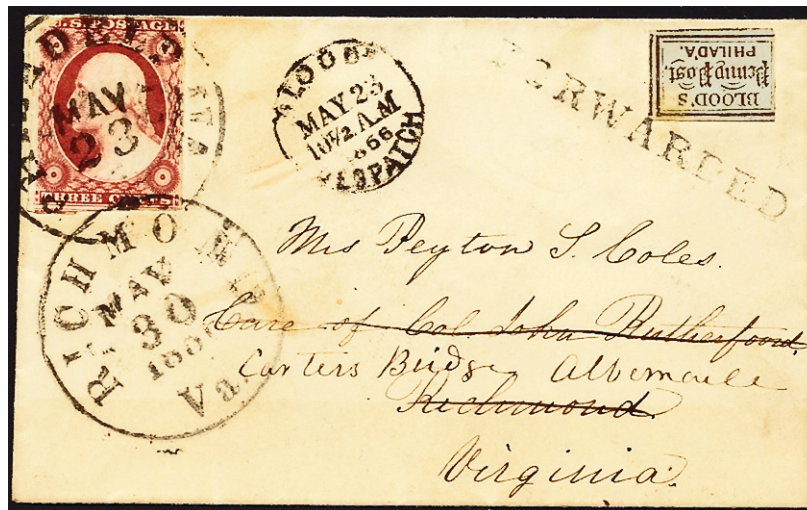 U.S. POSTAGE
THREE CENTS
MAY
23
BLOOD'S
MAY 23
10½ A.M
DESPATCH
FORWARDED
BLOOD'S
Penny Post,
PHILAD'A.
RICHMOND
MAY
30
Va.
Mrs Peyton S. Coles.
Care of Col. John Rutherfoord.
Carters Bridge Albemarle
Richmond.
Virginia.